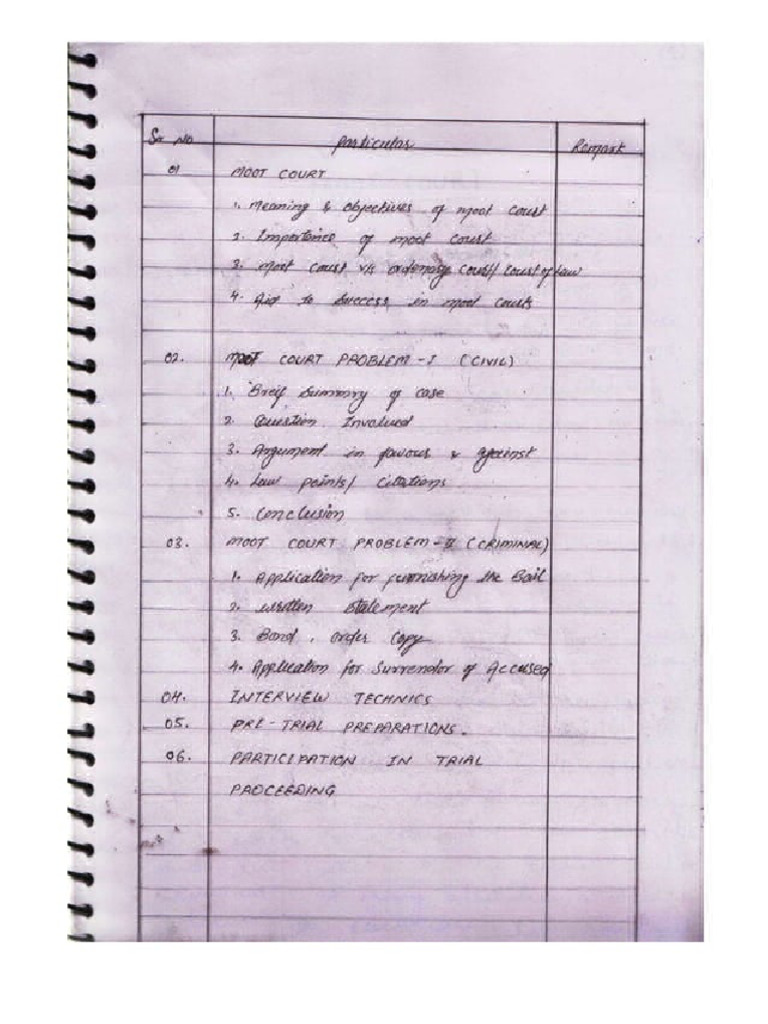 Sr No Particular Remark
01 MOOT COURT
1. Meaning & Objectives of moot court
2. Importance of moot court
3. Moot court v/s ordenary court/ court of law
4. Aid to Success in moot courts
02. MOOT COURT PROBLEM-I (CIVIL)
1. Breif Summary of case
2. Question Involved
3. Argument in favour & against
4. Law points/ citations
5. Conclusion
03. MOOT COURT PROBLEM-II (CRIMINAL)
1. Application for furnishing the Bail
2. written statement
3. Bond, order copy
4. Application for Surrender of Accused
04. INTERVIEW TECHNICS
05. PRE-TRIAL PREPARATIONS.
06. PARTICIPATION IN TRIAL
PROCEEDING